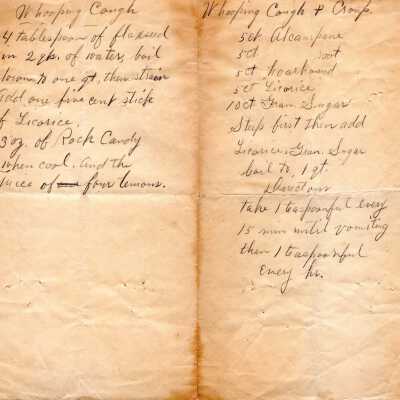 Whooping Cough
4 tablespoon of flaxseed
in 2 qts. of water, boil
down to one qt, then strain
add one five cent stick
of Licorice.
3 oz. of Rock Candy
when cool. And the
juice of four lemons.
Whooping Cough & Croup.
5ct Alcampane
5ct root
5ct hoarhound
5ct Licorice
10ct Gran. Sugar
Steep first then add
Licorice & Gran. Sugar
boil to 1 qt.
Directions
take 1 teaspoonful every
15 min until vomiting
then 1 teaspoonful
Every hr.